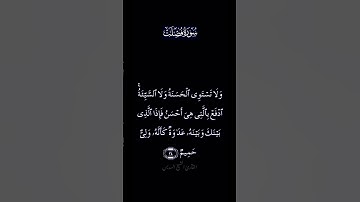 سُورَةُ فُصِّلَتْ
وَلَا تَسْتَوِى ٱلْحَسَنَةُ وَلَا ٱلسَّيِّئَةُ ۚ
ٱدْفَعْ بِٱلَّتِى هِىَ أَحْسَنُ فَإِذَا ٱلَّذِى
بَيْنَكَ وَبَيْنَهُۥ عَدَٰوَةٌ كَأَنَّهُۥ وَلِىٌّ
حَمِيمٌ ٣٤